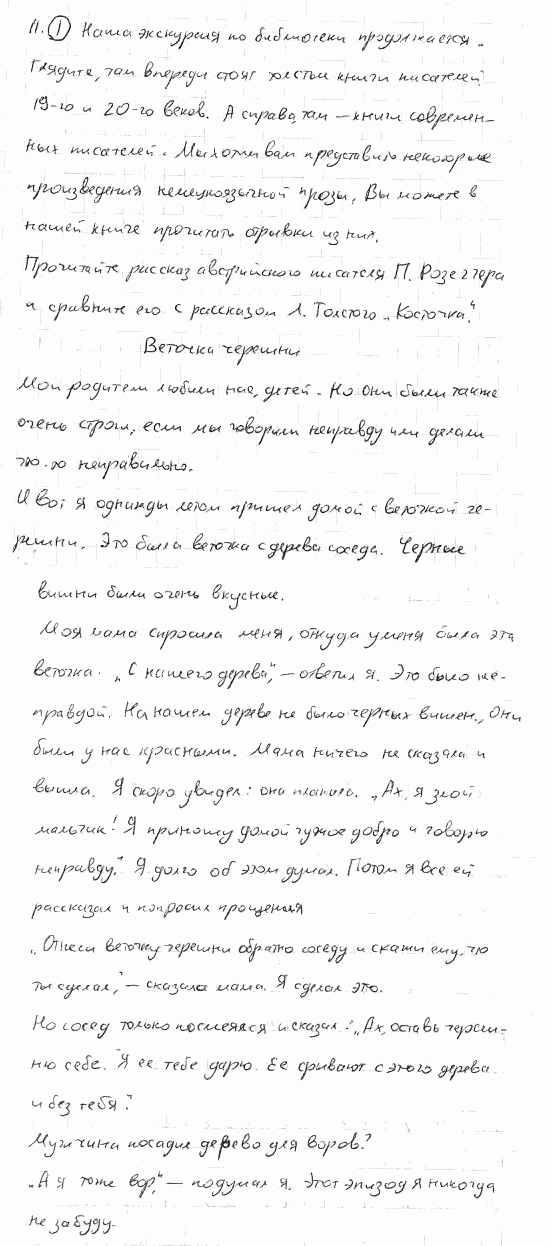 11. ① Наша экскурсия по библиотеки продолжается.
Глядите, там впереди стоят толстые книги писателей
19-го и 20-го веков. А справа, там – книги современ-
ных писателей. Мы хотим вам представить некоторые
произведения немецкоязычной прозы. Вы можете в
нашей книге прочитать отрывки из них.
Прочитайте рассказ австрийского писателя П. Розеггера
и сравните его с рассказом Л. Толстого „Косточка“.
Веточка черешни
Мои родители любили нас, детей. Но они были также
очень строги, если мы говорили неправду или делали
что-то неправильно.
И вот я однажды летом пришел домой с веточкой че-
решни. Это была веточка с дерева соседа. Черные
вишни были очень вкусные.
Моя мама спросила меня, откуда у меня была эта
веточка. „С нашего дерева“, – ответил я. Это было не-
правдой. На нашем дереве не было черных вишен. Они
были у нас красными. Мама ничего не сказала и
вышла. Я скоро увидел: она плакала. „Ах, я злой
мальчик! Я приношу домой чужое добро и говорю
неправду.“ Я долго об этом думал. Потом я все ей
рассказал и попросил прощения
„Отнеси веточку черешни обратно соседу и скажи ему, что
ты сделал,“ – сказала мама. Я сделал это.
Но сосед только посмеялся и сказал: „Ах, оставь череш-
ню себе. Я ее тебе дарю. Ее срывают с этого дерева
и без тебя.“
Мужчина посадил дерево для воров?
„А я тоже вор,“ – подумал я. Этот эпизод я никогда
не забуду.